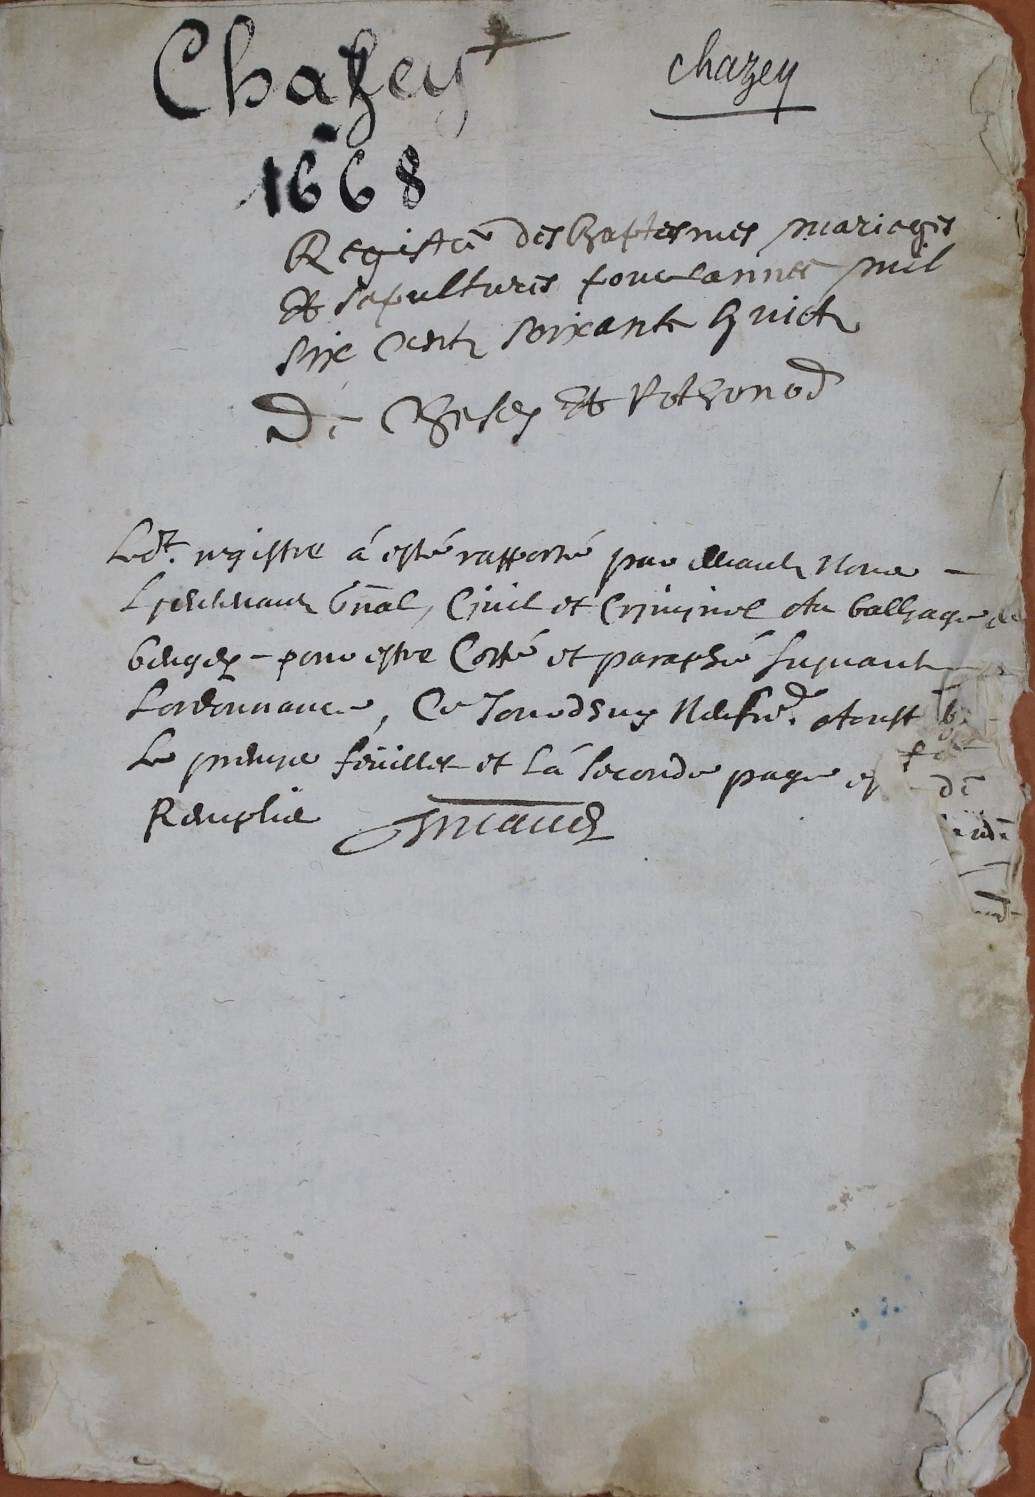 Chazey
chazey
1668
Registre des baptesmes mariages
et sepultures pour lannee mil
six cent soixante huict
De et Rothonod
Led.t registre á esté rapporté par devant Nous
Lieutenant Gnal, Civil et Criminel Au balliage de
beugey - pour estre Cotté et paraphé suyvant
Lordonnance, Ce Jourdhuy Aoust
Le premier feuillet et Lá seconde page
Remplie